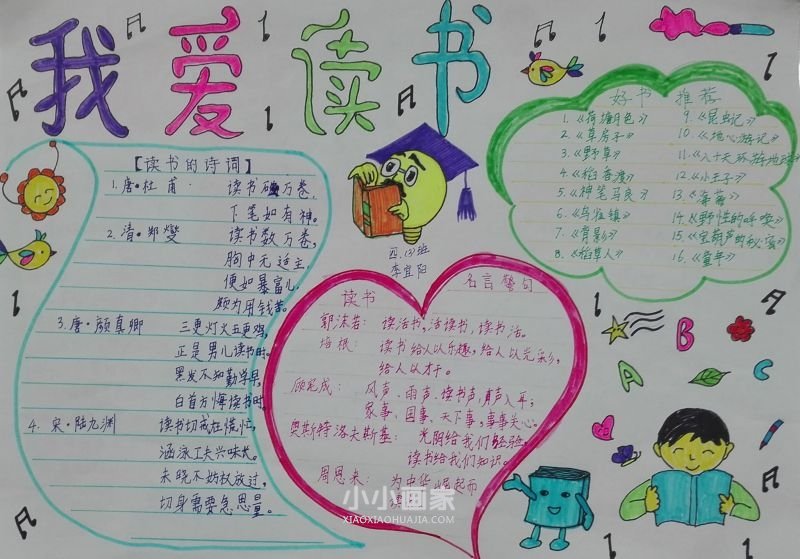 我爱读书
【读书的诗词】
1.唐·杜甫 读书破万卷,
下笔如有神。
2.清·郑燮 读书数万卷,
胸中无适主,
便如暴富儿,
颇为用钱苦。
3.唐·颜真卿 三更灯火五更鸡,
正是男儿读书时。
黑发不知勤学早,
白首方悔读书时
4.宋·陆九渊 读书切戒在慌忙,
涵泳工夫兴味长。
未晓不妨权放过,
切身需要急思量。
四.(3)班
李宜阳
好书推荐
1.《荷塘月色》
2.《草房子》
3.《野草》
4.《稻香渡》
5.《神笔马良》
6.《乌雅镇》
7.《背影》
8.《稻草人》
9.《昆虫记》
10.《地心游记》
11.《八十天环游地球
12.《小王子》
13.《海蒂》
14.《野性的呼唤》
15.《宝葫芦的秘密》
16.《童年》
读书 名言警句
郭沫若: 读活书,活读书,读书活。
培根: 读书给人以乐趣,给人以光彩,
给人以才干。
顾宪成: 风声、雨声、读书声,声声入耳;
家事、国事、天下事,事事关心。
奥斯特洛夫斯基: 光阴给我们经验,
读书给我们知识。
周恩来: 为中华崛起而
A
B
C
小小画家
XIAOXIAOHUAJIA.COM